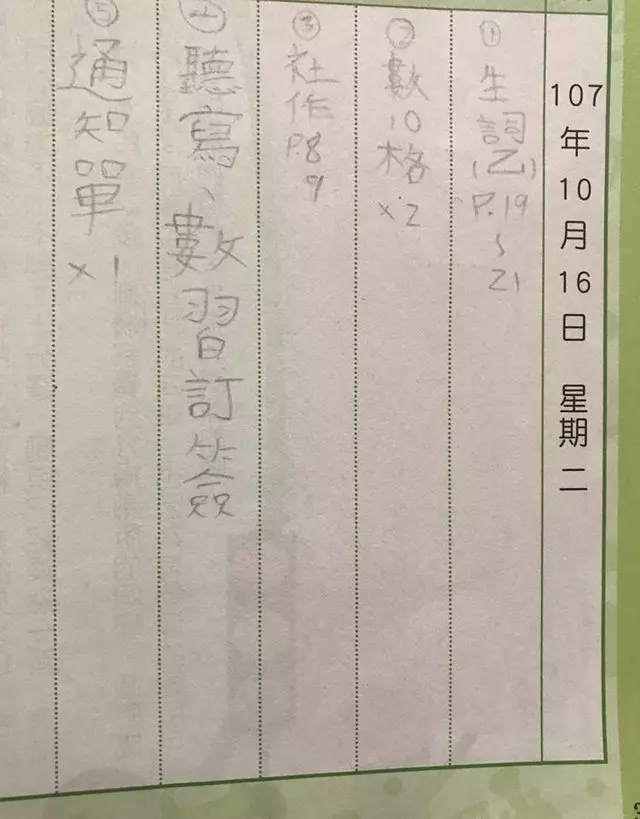 107年10月16日 星期二
① 生詞(乙)P.19~21
② 數10格×2
③ 社作P.8 9
④ 聽寫、數習訂簽
⑤ 通知單×1